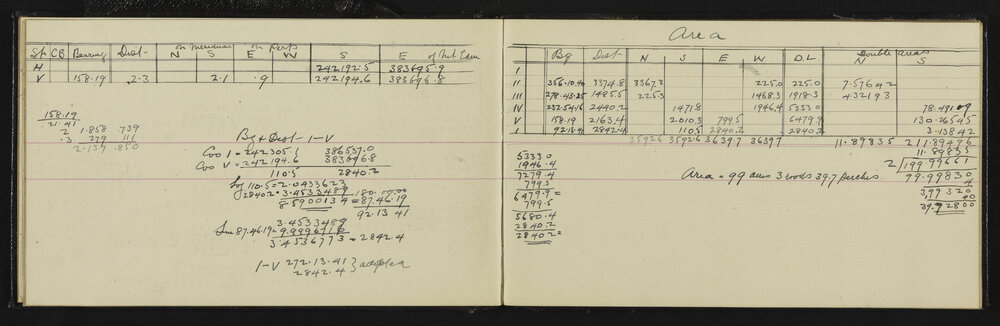 on Meridian on Perp
St CB Bearing Dist N S E W S E of Mt Eden
H 242192.5 383695.9
V 158.19 2.3 2.1 .9 242194.6 383696.8
158.19
21.41
2 1.858 .739
.3 279 111
2.137 .850
Bg & Dist I-V
Coo I = 242305.1 386537.0
Coo V = 242194.6 383696.8
110.5 2840.2
Log 110.5 = 2.0433623
2840.2 = 3.4533489 180.00.00
8.5900134 = 87.46.19
92.13 41
3.4533489
Sin 87.46.19 = 9.9996716
3.4536773 = 2842.4
I-V 272.13.41 } adopted
2842.4
Area
Bg Dist N S E W D.L Double areas
N S
I
II 356.10.40 3374.8 3367.3 225.0 225.0 7.57642
III 278.43.25 1485.5 225.3 1468.3 1918.3 4.32193
IV 232.54.16 2440.2 1471.8 1946.4 5333.0 78.49109
V 158.19 2163.4 2010.3 799.5 6479.9 130.26545
I 92.13.41 2842.4 110.5 2840.2 2840.2 3.13842
3592.6 3592.6 3639.7 3639.7 11.89835 211.89496
11.89835
2 199.99661
99.99830
4
3,99320
40
39.72800
5333.0
1946.4
7279.4
799.5
6479.9 =
799.5
5680.4
2840.2
2840.2 =
Area = 99 acres 3 roods 39.7 perches